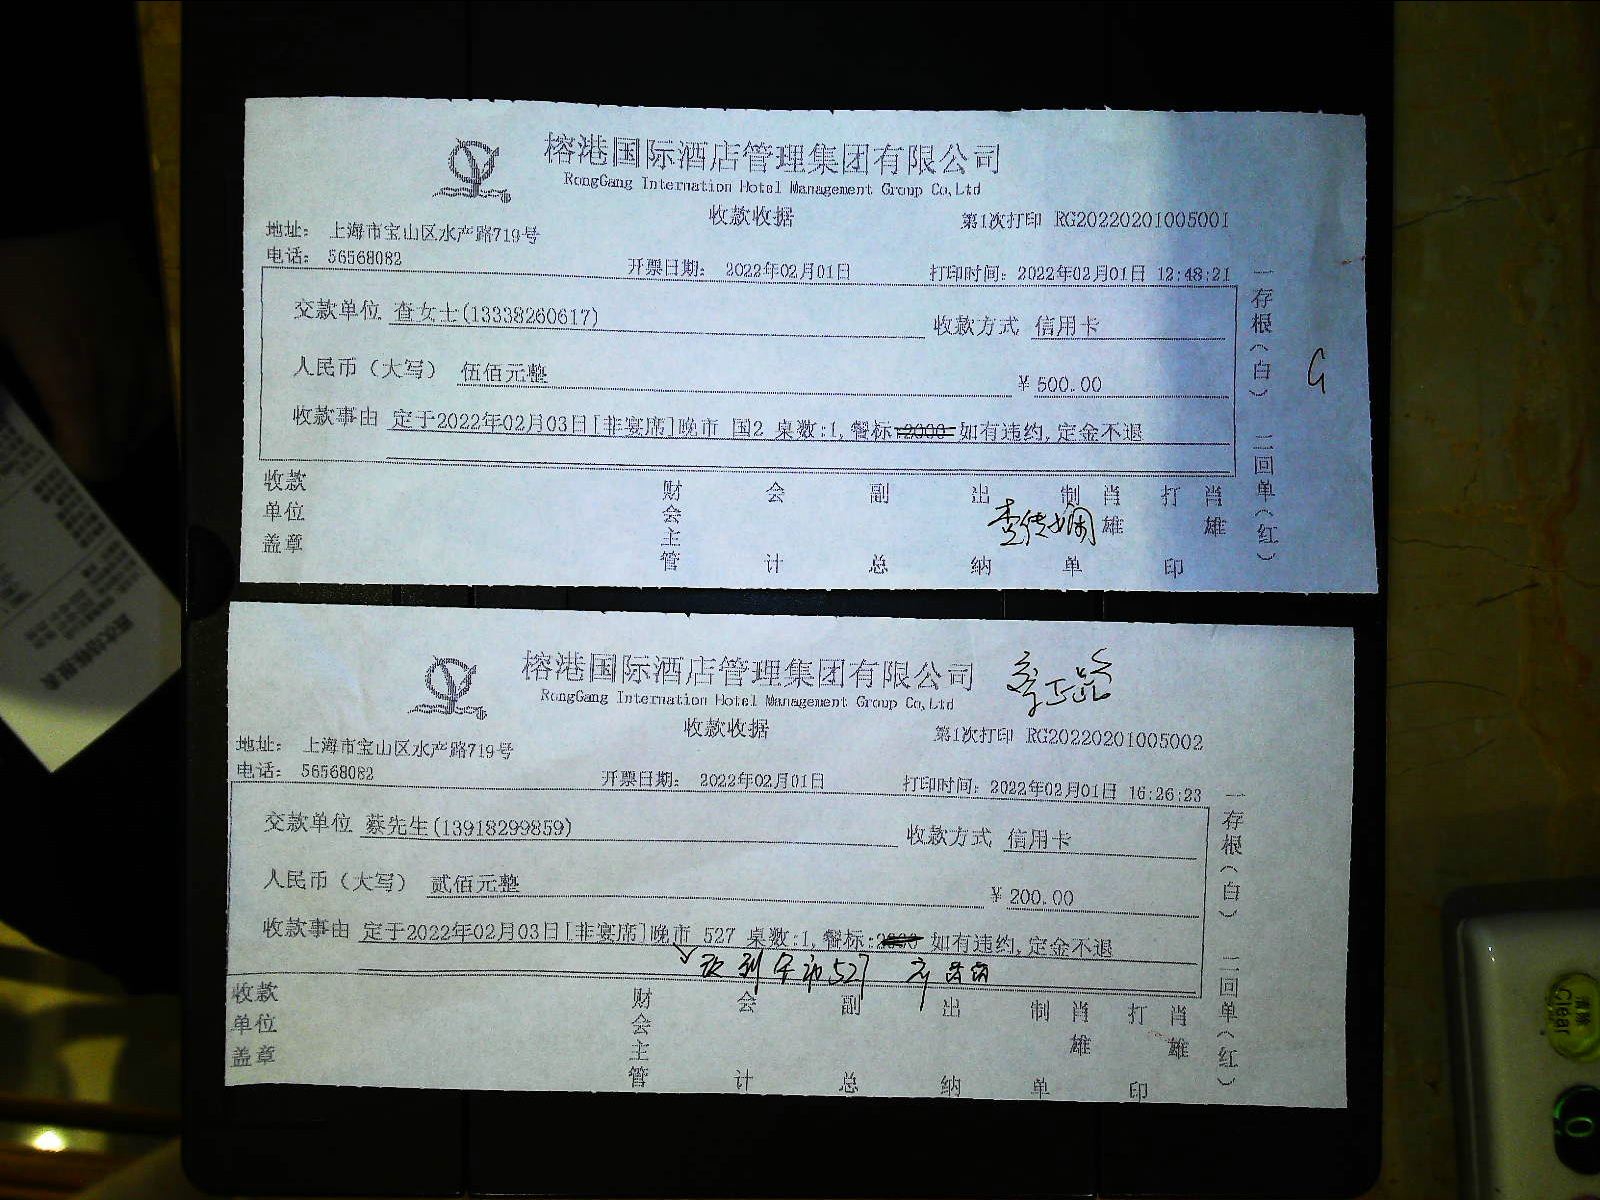 榕港国际酒店管理集团有限公司
RongGang Internation Hotel Management Group Co,Ltd
收款收据
第1次打印 RG20220201005001
地址: 上海市宝山区水产路719号
电话: 56568082
开票日期: 2022年02月01日
打印时间: 2022年02月01日 12:48:21
交款单位 查女士(13338260617)
收款方式 信用卡
人民币(大写) 伍佰元整
¥ 500.00
收款事由 定于2022年02月03日[非宴席]晚市 国2 桌数:1,餐标:2000 如有违约,定金不退
收款单位盖章
财会主管
会计
副总
出纳
制单
肖雄
打印
肖雄
一存根(白) 二回单(红)
G
榕港国际酒店管理集团有限公司
RongGang Internation Hotel Management Group Co,Ltd
收款收据
第1次打印 RG20220201005002
地址: 上海市宝山区水产路719号
电话: 56568082
开票日期: 2022年02月01日
打印时间: 2022年02月01日 16:26:23
交款单位 蔡先生(13918299859)
收款方式 信用卡
人民币(大写) 贰佰元整
¥ 200.00
收款事由 定于2022年02月03日[非宴席]晚市 527 桌数:1,餐标: 如有违约,定金不退
改到 527
收款单位盖章
财会主管
会计
副总
出纳
制单
肖雄
打印
肖雄
一存根(白) 二回单(红)
清除
Clear
0